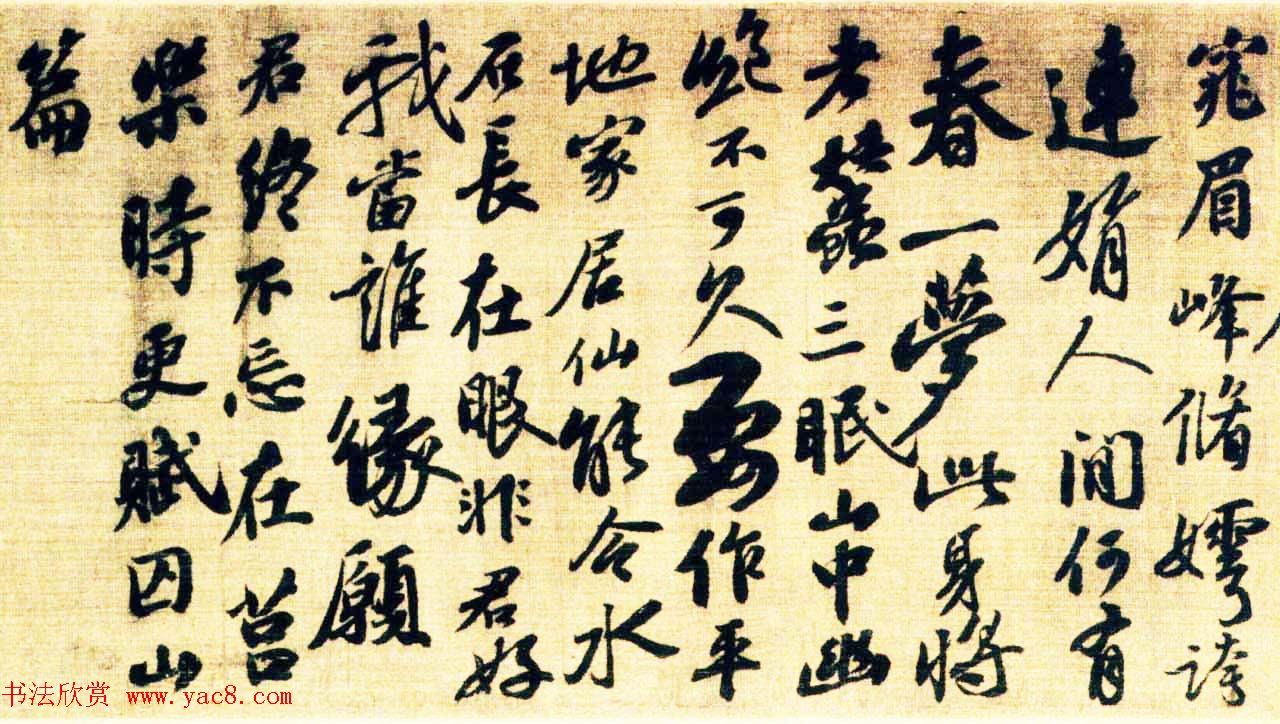 窕眉峰脩嫮誇
連娟人間何有
春一夢此身將
老蠶三眠山中幽
絕不可久要作平
地家居仙能令水
石長在眼非君好
我當誰緣願
君終不忘在莒
樂時更賦囚山
篇
书法欣赏 www.yac8.com